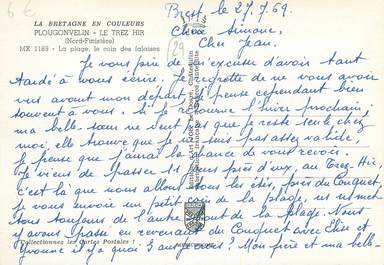 6€
Brest le 27.7.69.
LA BRETAGNE EN COULEURS
Chère Simone,
PLOUGONVELIN - LE TREZ HIR
(Nord-Finistère)
Cher Jean.
MX 1188 - La plage, le coin des falaises
(29
Je vous prie de m'excuser d'avoir tant
tardé à vous écrire. Je regrette de ne vous avoir
vus avant mon départ. Je pense cependant bien
souvent à vous. Si je retourne l'hiver prochain,
ma belle-sœur ne veut pas que je reste seule chez
moi, elle trouve que je ne suis pas assez valide,
je pense que j'aurai la chance de vous revoir.
Je viens de passer 11 jours près d'eux, au Trez-Hir,
c'est là que nous allons tous les étés, près du Conquet,
je vous envoie un petit coin de la plage,
nous toujours de l'autre bout de la plage. Nous
y avons passé en revenant du Conquet avec Elise et
Yvonne il y a quoi 3 ans je crois? Mon frère et ma belle-
Collectionnez les Cartes Postales !